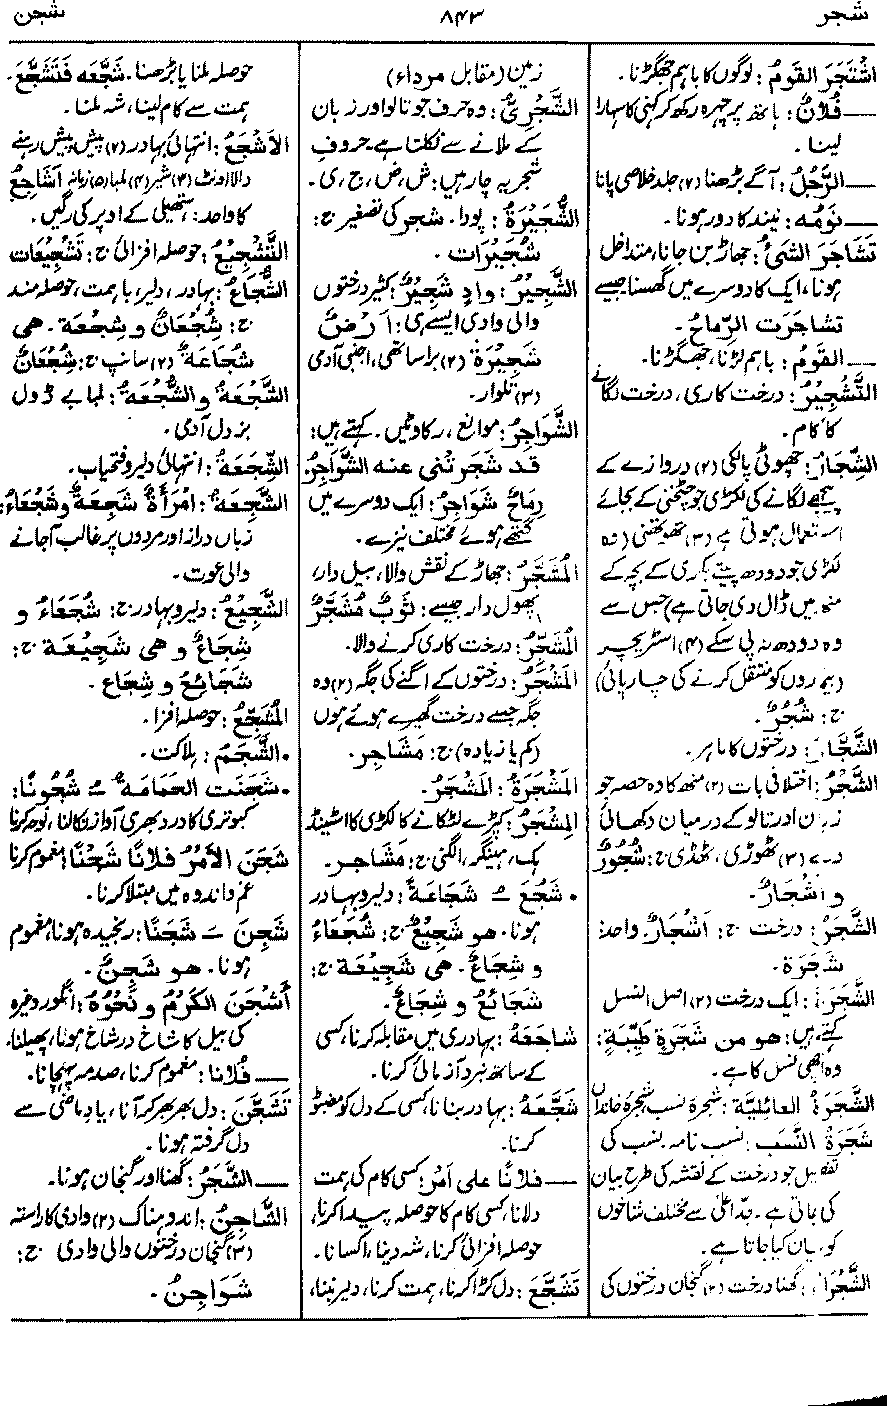 شجر ۸۴۳ شجن
اشْتَجَرَ القَومُ: لوگوں کا باہم جھگڑنا۔
— فُلَانٌ: ہاتھ پر چہرہ رکھ کر کہنی کا سہارا
لینا۔
— الرَّجُلُ: آگے بڑھنا (۲) جلد خلاصی پانا
— نَومُه: نیند کا دور ہونا۔
تَشَاجَرَ الشَیءُ: جھاڑ بن جانا، متداخل
ہونا، ایک کا دوسرے میں گھسنا جیسے
تشاجَرَت الرِّماحُ۔
— القَومُ: باہم لڑنا، جھگڑنا۔
التَّشْجِيرُ: درخت کاری، درخت لگانے
کا کام۔
الشِّجَارُ: چھوٹی پالکی (۲) دروازے کے
پیچھے لگانے کی لکڑی جو چٹخنی کے بجائے
استعمال ہوتی ہے (۳) تھوتھنی (وہ
لکڑی جو دودھ پیتے بکری کے بچہ کے
منہ میں ڈال دی جاتی ہے) جس سے
وہ دودھ نہ پی سکے (۴) اسٹریچر
(بیماروں کو منتقل کرنے کی چارپائی)
ج: شُجُرٌ۔
الشَّجَّارُ: درختوں کا ماہر۔
الشَّجْرُ: اختلافی بات (۲) منھ کا وہ حصہ جو
زبان اور تالو کے درمیان دکھائی
دے (۳) ٹھوڑی، ٹھڈی ج: شُجُورٌ
و أشْجَارٌ۔
الشَّجَرُ: درخت ج: أَشْجَارٌ واحد:
شَجَرَة۔
الشَّجَرَةُ: ایک درخت (۲) اصل النسل
کہتے ہیں: هو من شَجَرَةٍ طَيِّبَةٍ:
وہ اچھی نسل کا ہے۔
الشَّجَرَةُ العائليَّة: شجرۂ نسب، شجرۂ خاندان
شَجَرَةُ النَّسَب: نسب نامہ، نسب کی
تفصیل جو درخت کے نقشہ کی طرح بیان
کی جاتی ہے۔ جدّ اعلیٰ سے مختلف شاخوں
کو بیان کیا جاتا ہے۔
الشَّجْرَاءُ: گھنا درخت (۲) گنجان درختوں کی
زمین (مقابل مرداء)
الشَّجْرِيُّ: وہ حرف جو تالو اور زبان
کے ملانے سے نکلتا ہے۔ حروف
شجریہ چار ہیں: ش، ض، ج، ی۔
الشُّجَيرَةُ: پودا۔ شجر کی تصغیر ج:
شُجَيرَات۔
الشَّجِيرُ: وادٍ شَجِيرٌ: کثیر درختوں
والی وادی ایسے ہی: أَرْضٌ
شَجِيرَةٌ (۲) برا ساتھی، اجنبی آدمی
(۳) تلوار۔
الشَّوَاجِرُ: موانع، رکاوٹیں۔ کہتے ہیں:
قد شَجَرَتْنِي عنه الشَّوَاجِرُ
رِمَاحٌ شَوَاجِرُ: ایک دوسرے میں
گتھے ہوئے مختلف نیزے۔
المُشَجَّرُ: جھاڑ کے نقش والا، بیل دار،
پھول دار جیسے: ثَوبٌ مُشَجَّرٌ
المُشَجِّرُ: درخت کاری کرنے والا۔
المَشْجَرُ: درختوں کے اگنے کی جگہ (۲) وہ
جگہ جسے درخت گھیرے ہوئے ہوں
(کم یا زیادہ) ج: مَشَاجِر۔
المَشْجَرَةُ: المَشْجَرُ۔
المِشْجَرُ: کپڑے لٹکانے کا لکڑی کا اسٹینڈ
ہک، ہینگر، الگنی ج: مَشَاجِر۔
• شَجُعَ ـُ شَجَاعَةً: دلیر و بہادر
ہونا۔ هو شَجِيعٌ ج: شُجَعَاءُ
و شِجَاعٌ۔ هي شَجِيعَة ج:
شَجَائِعُ و شِجَاعٌ۔
شاجَعَهُ: بہادری میں مقابلہ کرنا، کسی
کے ساتھ نبرد آزمائی کرنا۔
شَجَّعَهُ: بہادر بنانا، کسی کے دل کو مضبوط
کرنا۔
— فلانًا على أمرٍ: کسی کام کی ہمت
دلانا، کسی کام کا حوصلہ پیدا کرنا،
حوصلہ افزائی کرنا، شہ دینا، اکسانا۔
تَشَجَّعَ: دل کڑا کرنا، ہمت کرنا، دلیر بننا،
حوصلہ ملنا یا بڑھنا۔ شَجَّعَه فَتَشَجَّعَ۔
ہمت سے کام لینا، شہ ملنا۔
الأَشْجَعُ: انتہائی بہادر (۲) پیش پیش رہنے
والا اونٹ (۳) شیر (۴) لمبا (۵) زمانہ أَشَاجِعُ
کا واحد: ہتھیلی کے اوپر کی رگیں۔
التَّشْجِيعُ: حوصلہ افزائی ج: تَشْجِيعَات
الشُّجَاعُ: بہادر، دلیر، باہمت، حوصلہ مند
ج: شُجْعَانٌ و شِجْعَة۔ هي
شُجَاعَةٌ (۲) سانپ ج: شُجْعَانٌ
الشَّجْعَةُ و الشُّجْعَةُ: لمبا بے ڈول
بزدل آدمی۔
الشِّجَعَةُ: انتہائی دلیر و فتحیاب۔
الشَّجِعَةُ: امْرَأَةٌ شَجِعَةٌ و شَجْعَاءُ:
زبان دراز اور مردوں پر غالب آجانے
والی عورت۔
الشَّجِيعُ: دلیر و بہادر ج: شُجَعَاءُ و
شِجَاعٌ و هي شَجِيعَة ج:
شَجَائِعُ و شِجَاع۔
المُشَجِّعُ: حوصلہ افزا۔
• الشَّجَمُ: ہلاکت۔
• شَجَنَت الحَمَامَة ـُ شُجُونًا:
کبوتری کا درد بھری آواز نکالنا، نوحہ کرنا
شَجَنَ الأَمْرُ فُلَانًا شَجْنًا: مغموم کرنا
غم و اندوہ میں مبتلا کرنا۔
شَجِنَ ـَ شَجَنًا: رنجیدہ ہونا، مغموم
ہونا۔ هو شَجِنٌ۔
أَشْجَنَ الكَرْمُ و نَحْوُهُ: انگور وغیرہ
کی بیل کا شاخ در شاخ ہونا، پھیلنا۔
— فُلَانًا: مغموم کرنا، صدمہ پہنچانا۔
تَشَجَّنَ: دل بھر بھر کر آنا، یادِ ماضی سے
دل گرفتہ ہونا۔
— الشَّجَرُ: گھنا اور گنجان ہونا۔
الشَّاجِنُ: اندوہناک (۲) وادی کا راستہ
(۳) گنجان درختوں والی وادی ج:
شَوَاجِنُ۔